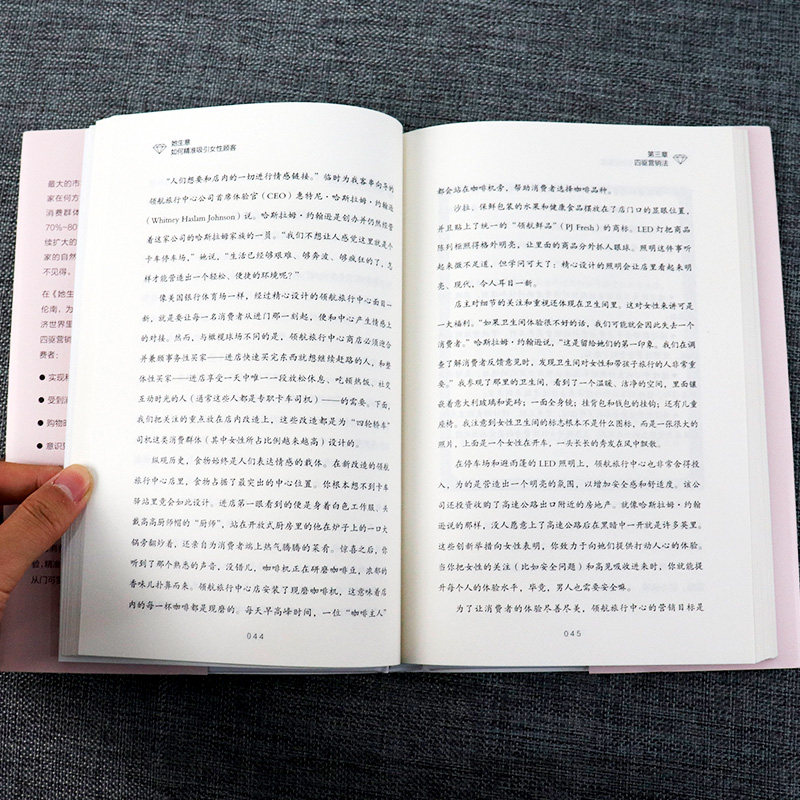 最大的市
家在何方
消费群体
70%~80
续扩大的
家的自然
不见得。
在《她生
伦南，为
济世界里
四驱营销
费者：
● 实现和
● 受到
● 购物
● 意识到
验，精准
从门可
她生意
如何精准吸引女性顾客
“人们想要和店内的一切进行情感链接。”临时为我客串向导的
领航旅行中心公司首席体验官（CEO）惠特尼·哈斯拉姆·约翰逊
(Whitney Haslam Johnson) 说。哈斯拉姆·约翰逊是创办并仍然经营
着这家公司的哈斯拉姆家族的一员。“我们不想让人感觉这里就是个
卡车停车场，”她说，“生活已经够艰难、够奔波、够疯狂的了，怎
样才能营造出一个轻松、便捷的环境呢？”
像美国银行体育场一样，经过精心设计的领航旅行中心面目一
新，就是要让每一名消费者从进门那一刻起，便和中心产生情感上
的对接。然而，与橄榄球场不同的是，领航旅行中心商店必须迎合
并兼顾事务性买家——进店快速买完东西就想继续赶路的人，和整
体性买家——进店享受一天中唯一一段放松休息、吃顿热饭、社交
互动时光的人（通常这些人都是专职卡车司机）——的需要。下面，
我们把关注的重点放在店内改造上，这些改造都是为“四轮轿车”
司机这类消费群体（其中女性所占比例越来越高）设计的。
纵观历史，食物始终是人们表达情感的载体。在新改造的领航
旅行中心店里，食物占据了最突出的中心位置。你根本想不到卡车
驿站里竟会如此设计。进店第一眼看到的便是身着白色工作服、头
戴高高厨师帽的“厨师”，站在开放式厨房里的他在炉子上的一口大
锅旁翻炒着，还亲自为消费者端上热气腾腾的菜肴。惊喜之后，你
听到了那个熟悉的声音，没错儿，咖啡机正在研磨咖啡豆，浓郁的
香味儿扑鼻而来。领航旅行中心店安装了现磨咖啡机，这意味着店
内的每一杯咖啡都是现磨的。每天早高峰时间，一位“咖啡主人”
044
第三章
四驱营销法
都会站在咖啡机旁，帮助消费者选择咖啡品种。
沙拉、保鲜包装的水果和健康食品摆放在了店门口的显眼位置，
并且贴上了统一的“领航鲜品”（PJ Fresh）的商标。LED 灯把商品
陈列柜照得格外明亮，让里面的商品分外抓人眼球。照明这件事听
起来微不足道，但学问可大了：精心设计的照明会让店里看起来明
亮、现代，令人耳目一新。
店主对细节的关注和重视还体现在卫生间里。这对女性来讲可是
一大福利。“如果卫生间体验很不好的话，我们可能就会因此失去一个
消费者。”哈斯拉姆·约翰逊说，“这是留给她们的第一印象。我们在调
查了解消费者反馈意见时，发现卫生间对女性和带孩子旅行的人非常重
要。”我参观了那里的卫生间，看到了一个温暖、洁净的空间，里面镶
嵌着意大利玻璃和瓷砖；一面全身镜；挂背包和钱包的挂钩；还有儿童
座椅。我注意到女性卫生间的标志根本不是什么图标，而是一张很大的
照片，上面是一个女性在开车，一头长长的秀发在风中飘散。
在停车场和避雨蓬的 LED 照明上，领航旅行中心也非常舍得投
入，为的是营造出一个明亮的氛围，以增加安全感和舒适度。该公
司还投资收购了高速公路出口附近的房地产。就像哈斯拉姆·约翰
逊说的那样，没人愿意上了高速公路后在黑暗中一开就是许多英里。
这些创新举措向女性表明，你致力于向她们提供打动人心的体验。
当你把女性的关注（比如安全问题）和高见吸收进来时，你就能提
升每个人的体验水平，毕竟，男人也需要安全嘛。
为了让消费者的体验尽善尽美，领航旅行中心的营销目标是
045